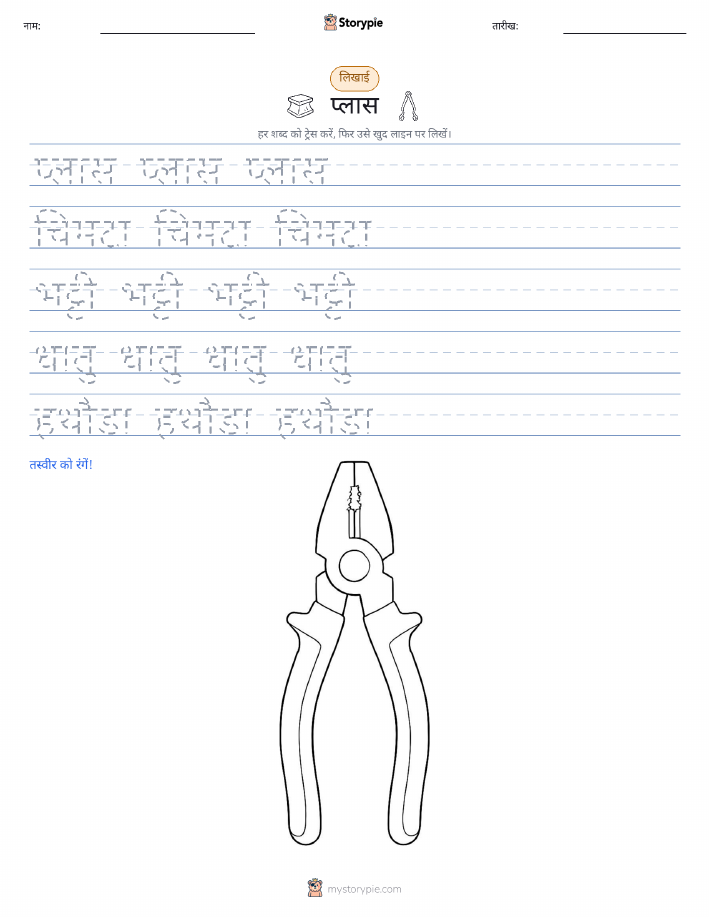 नाम:
Storypie
तारीख:
लिखाई
प्लास
हर शब्द को ट्रेस करें, फिर उसे खुद लाइन पर लिखें।
प्लास प्लास प्लास
चिमटा चिमटा चिमटा
भट्टी भट्टी भट्टी भट्टी
धातु धातु धातु धातु
हथौड़ा हथौड़ा हथौड़ा
तस्वीर को रंगें!
mystorypie.com